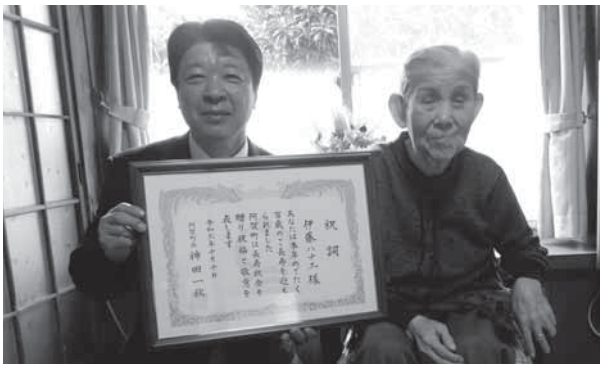 祝詞
伊藤ハナエ様
あなたは本年めでたく
百歳のご長寿を迎え
られました
阿賀町は長寿祝金を
贈り祝福と敬意を
表します
令和元年十月十日
阿賀町長 神田一秋